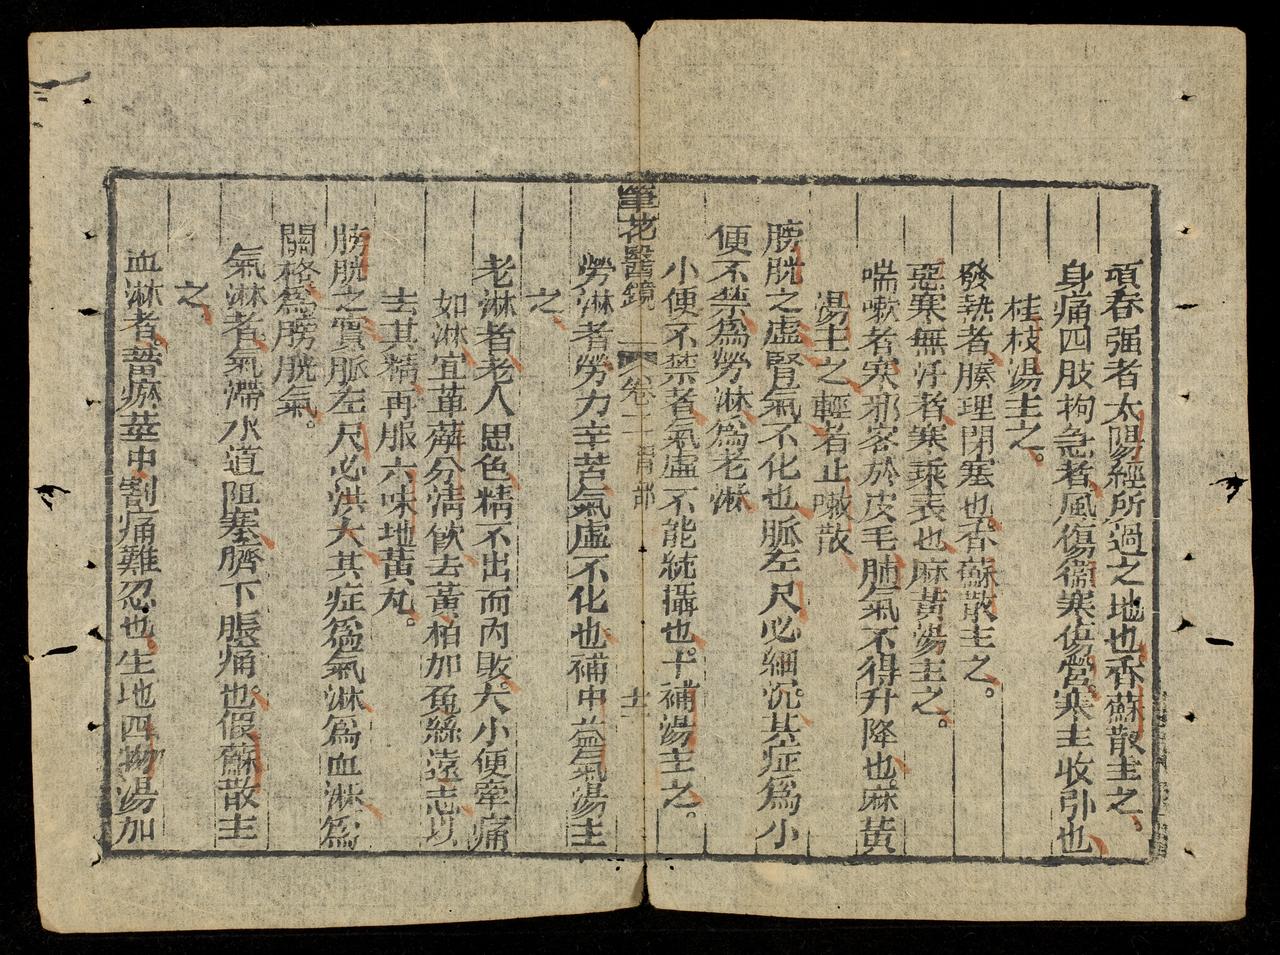 項脊强者太陽經所過之地也香蘇散主之。
身痛四肢拘急者風傷衞寒傷營寒主收引也
桂枝湯主之。
發熱者腠理閉塞也香蘇散主之。
惡寒無汗者寒乘表也麻黃湯主之。
喘嗽者寒邪客於皮毛肺氣不得升降也麻黃
湯主之輕者止嗽散
膀胱之虛腎氣不化也脈左尺必細沉其症爲小
便不禁爲勞淋爲老淋
小便不禁者氣虛不能統攝也。十補湯主之。
筆花醫鏡 卷二 胃部 十一
勞淋者勞力辛苦氣虛不化也補中益氣湯主
之
老淋者老人思色精不出而內敗大小便牽痛
如淋宜萆薢分淸飮去黃柏加兔絲遠志以
去其精再服六味地黃丸。
膀胱之實脈左尺必洪大其症爲氣淋爲血淋爲
關格爲膀胱氣。
氣淋者氣滯水道阻塞臍下脹痛也。假蘇散主
之
血淋者蓄瘀莖中割痛難忍也生地四物湯加